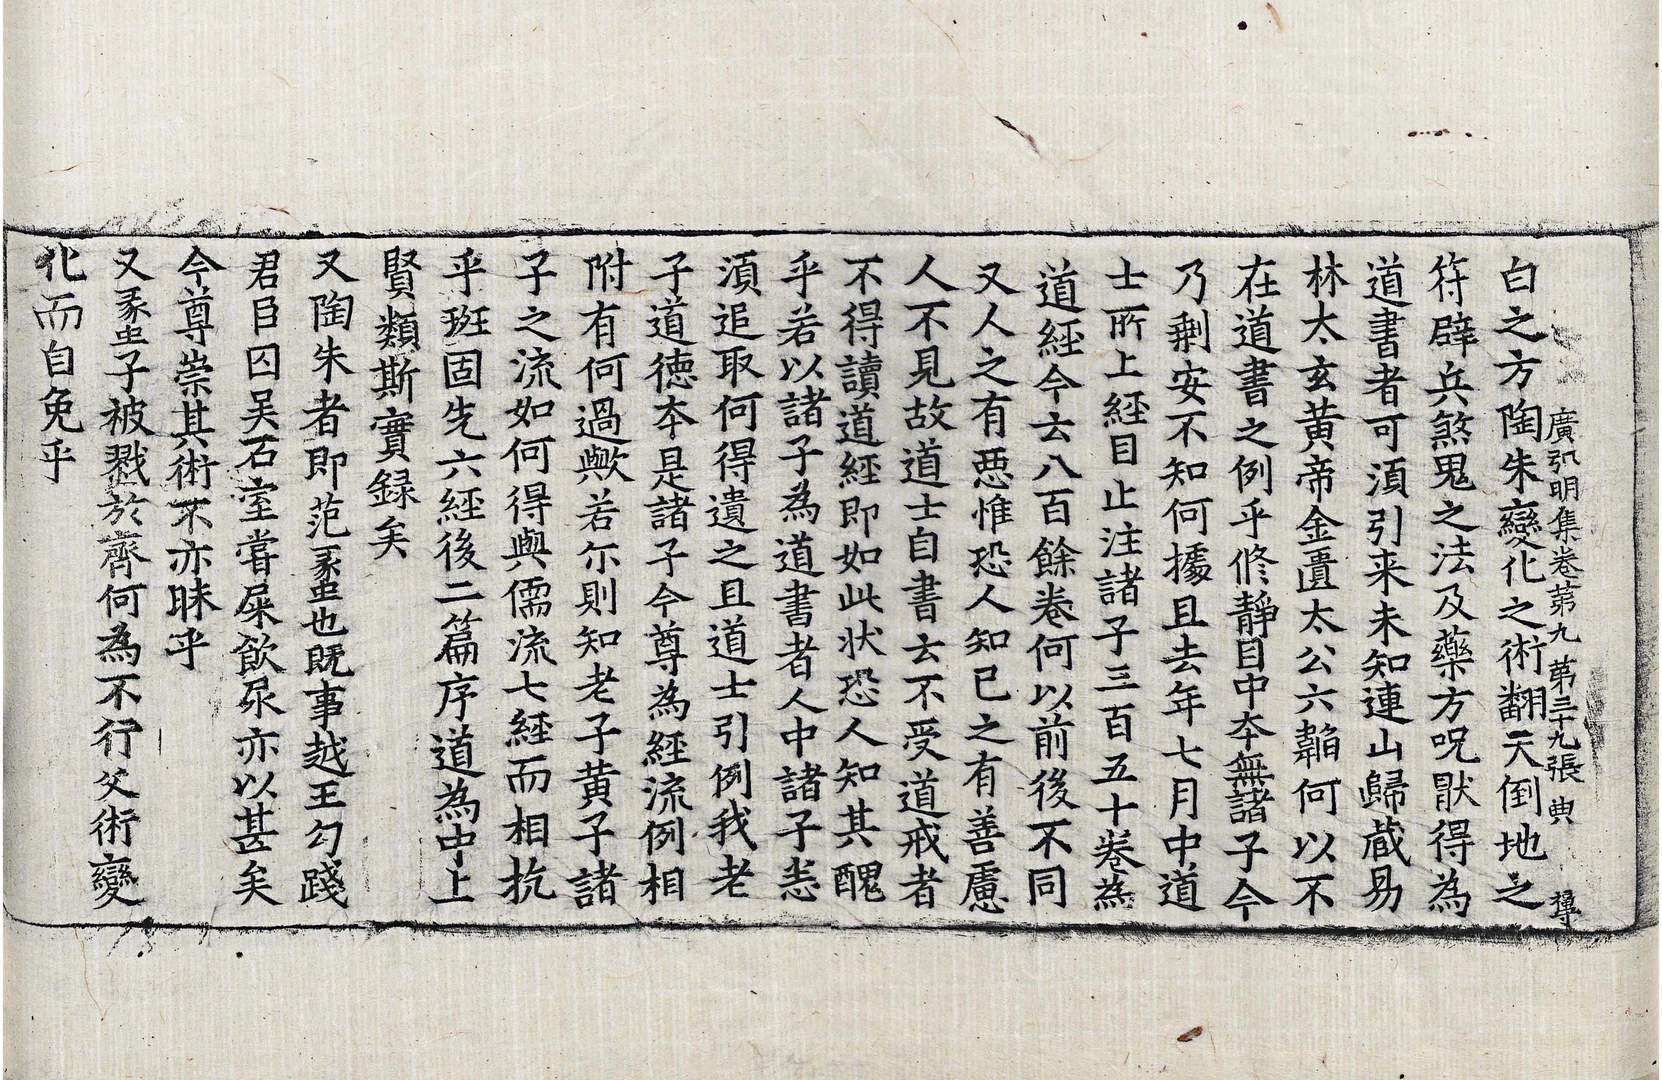 廣弘明集卷第九 第三十九張 典 㝷
白之方陶朱變化之術翻天倒地之
符辟兵煞鬼之法及藥方呪猒得為
道書者可湏引来未知連山歸蔵易
林太玄黄帝金匱太公六韜何以不
在道書之例乎修靜目中夲無諸子今
乃剩安不知何據且去年七月中道
士所上經目止注諸子三百五十卷為
道經今云八百餘卷何以前後不同
又人之有惡惟恐人知己之有善慮
人不見故道士自書云不受道戒者
不得讀道經即如此状恐人知其醜
乎若以諸子為道書者人中諸子悉
湏追取何得遺之且道士引例我老
子道徳夲是諸子今尊為經流例相
附有何過歟若尓則知老子黄子諸
子之流如何得與儒流七經而相抗
乎班固先六經後二篇序道為中上
賢類斯實録矣
又陶朱者即范蠡也既事越王勾踐
君臣囚吴石室甞屎飲尿亦以甚矣
今尊崇其術不亦昧乎
又蠡子被戮於齊何為不行父術變
化而自免乎